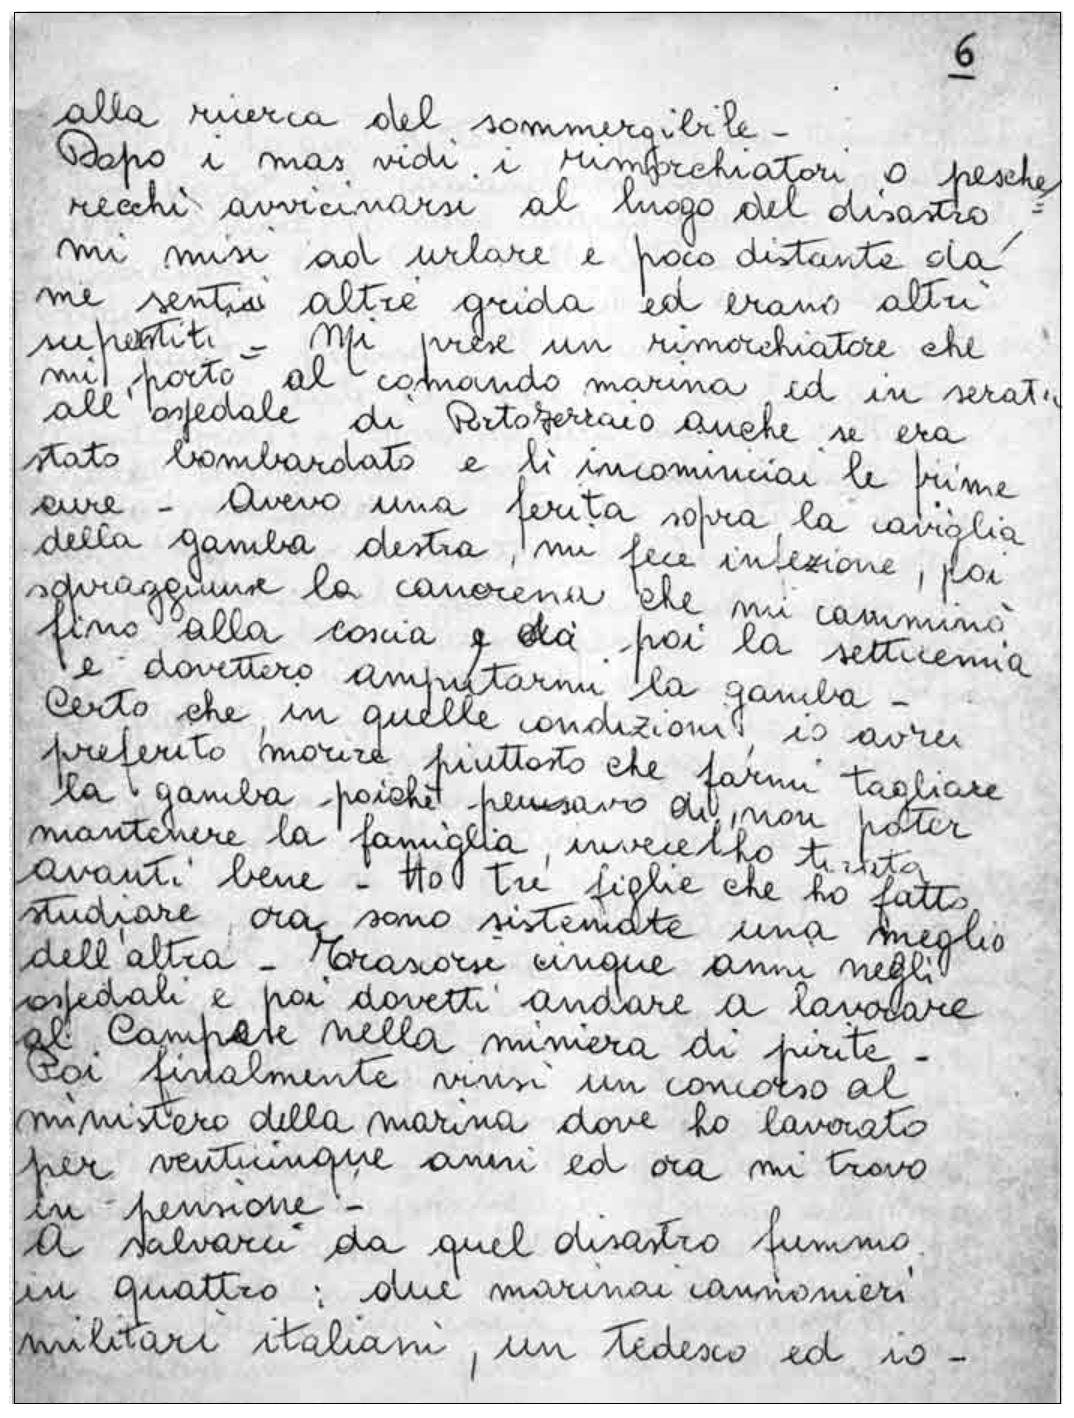 6
alla ricerca del sommergibile -
Dopo i mas vidi i rimorchiatori o pesche=
recchi avvicinarsi al luogo del disastro,
mi misi ad urlare e poco distante da
me sentii altre grida ed erano altri
superstiti - Mi prese un rimorchiatore che
mi portò al comando marina ed in serata
all'ospedale di Portoferraio anche se era
stato bombardato e lì incominciai le prime
cure - Avevo una ferita sopra la caviglia
della gamba destra, mi fece infezione, poi
sopraggiunse la cancrena che mi camminò
fino alla coscia e da poi la setticemia
e dovettero amputarmi la gamba -
Certo che in quelle condizioni io avrei
preferito morire piuttosto che farmi tagliare
la gamba poichè pensavo di non poter
mantenere la famiglia, invece l'ho tirata
avanti bene - Ho tre figlie che ho fatto
studiare ora sono sistemate una meglio
dell'altra - Trascorsi cinque anni negli
ospedali e poi dovetti andare a lavorare
al Campese nella miniera di pirite -
Poi finalmente vinsi un concorso al
ministero della marina dove ho lavorato
per venticinque anni ed ora mi trovo
in pensione -
A salvarci da quel disastro fummo
in quattro : due marinai cannonieri
militari italiani, un tedesco ed io -